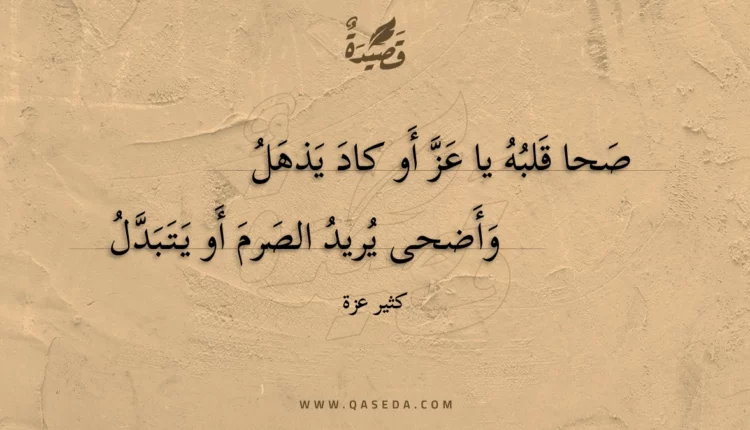 قَصِيدَةٌ
صَحا قَلبُهُ يا عَزَّ أَو كادَ يَذهَلُ
وَأَضحى يُريدُ الصَرمَ أَو يَتَبَدَّلُ
كثير عزة
WWW.QASEDA.COM